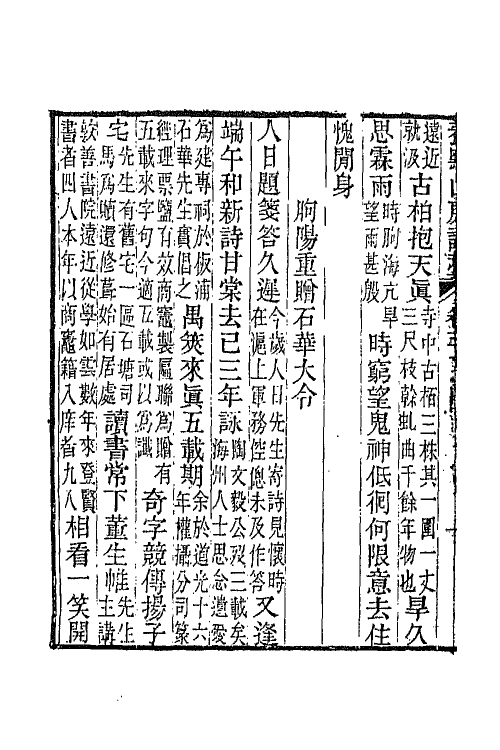 遠近就汲古柏抱天眞寺中古栢三株其一圍一丈三尺枝榦虬曲千餘年物也旱久
思霖雨時朐海亢旱望雨甚殷時窮望鬼神低徊何限意去住
愧閒身
朐陽重贈石華大令
人日題箋答久遲今歲人日先生寄詩見懷時在滬上軍務倥傯未及作答又逢
端午和新詩甘棠去已三年詠陶文毅公歿三載矣海州人士思念遺愛
爲建專祠於板浦石華先生實倡之禺筴來眞五載期余於道光十六年權攝分司篆
經理票鹽有效商竈製匾聯爲贈有五載來字句今適五載或以爲讖奇字競傳揚子
宅先生有舊宅一區石塘司馬爲贖還修葺始有居處讀書常下董生帷先生主講
敦善書院遠近從學如雲數年來登賢書者四人本年以商竈籍入庠者九人相看一笑開